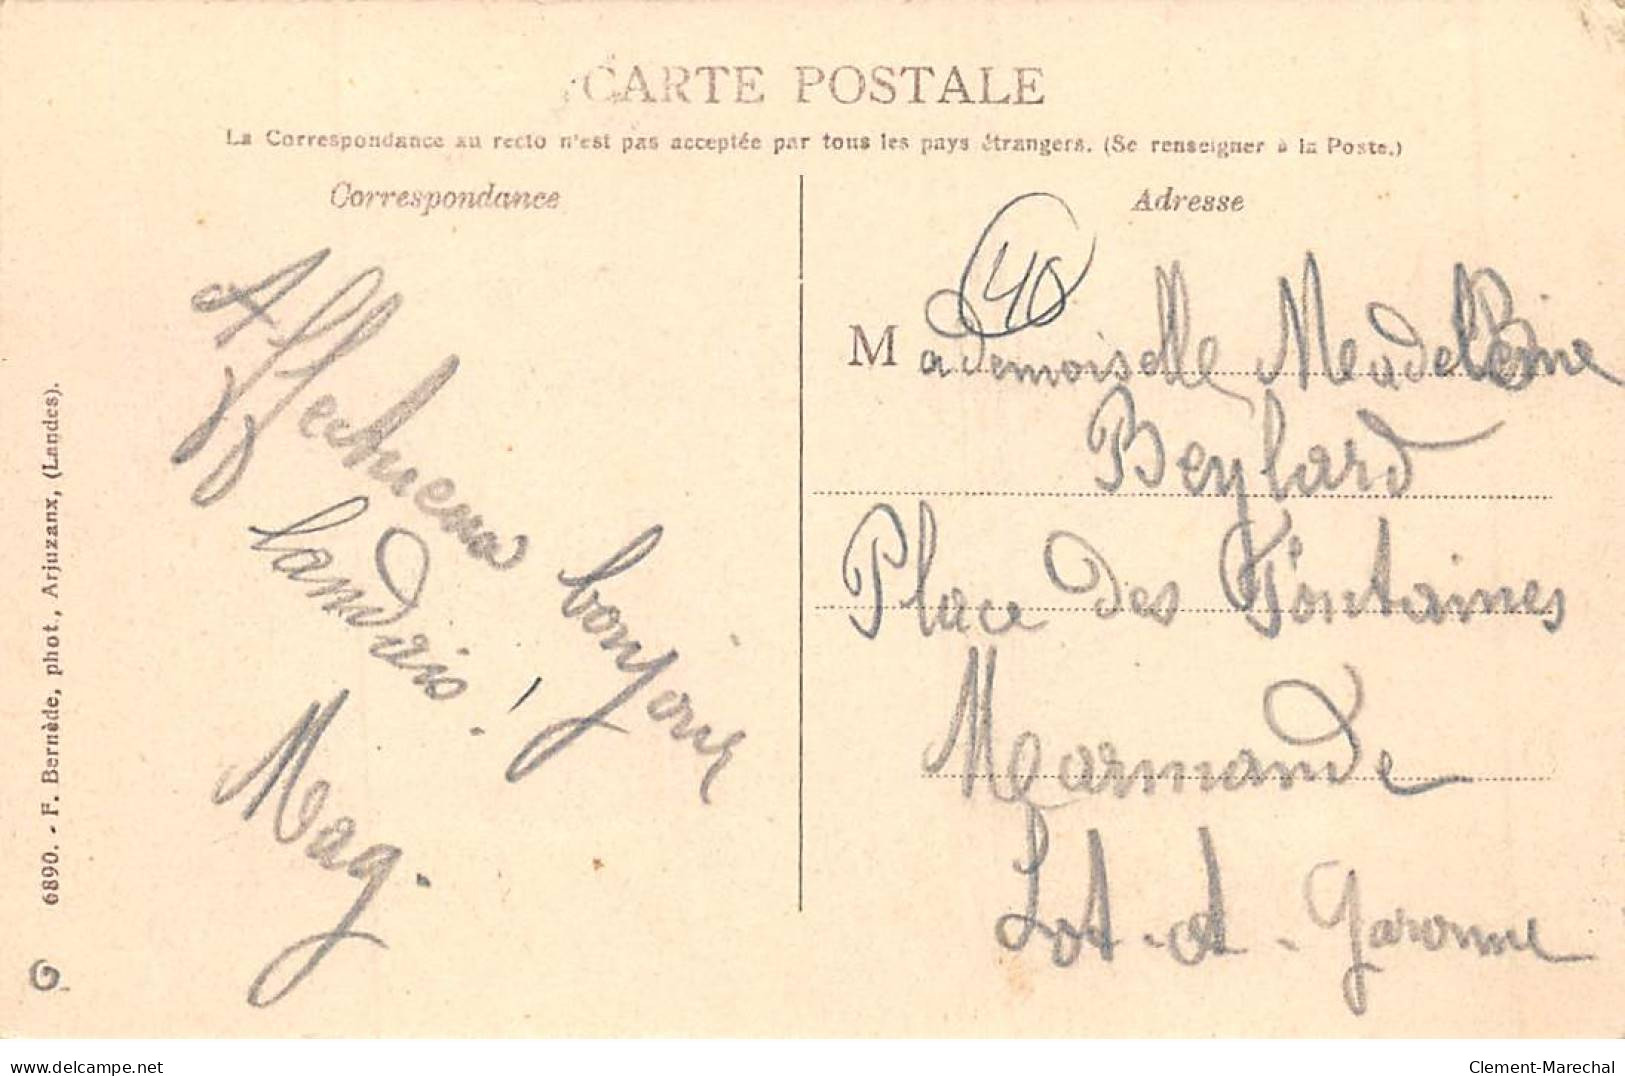 CARTE POSTALE
La Correspondance au recto n'est pas acceptée par tous les pays étrangers. (Se renseigner à la Poste.)
Correspondance
Affectueux bonjour
landais !
Mag.
Adresse
40
Mademoiselle Madeleine
Beylard
Place des Fontaines
Marmande
Lot-et-Garonne
6890. - F. Bernède, phot, Arjuzanx, (Landes).
delcampe.net
Clement-Marechal